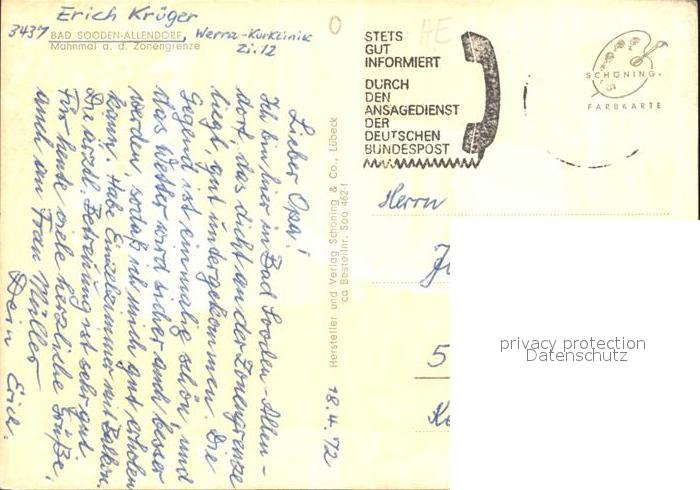 Erich Krüger
3437 BAD SOODEN-ALLENDORF, Werra-Kurklinik
Mahnmal a. d. Zonengrenze Zi. 12
Lieber Opa!
Ich bin hier in Bad Sooden-Allen-
dorf, das dicht an der Zonengrenze
liegt, gut untergekommen. Die
Gegend ist einmalig schön, und
das Wetter wird sicher auch besser
werden, sodaß ich mich gut erholen
kann. Habe Einzelzimmer mit Balkon.
Die ärztl. Betreuung ist sehr gut
Für heute viele herzliche Grüße,
auch an Frau Müller
Dein Erich.
18.4.72
Hersteller und Verlag Schöning & Co., Lübeck
ca Bestellnr. Soo 462-1
STETS
GUT
INFORMIERT
DURCH
DEN
ANSAGEDIENST
DER
DEUTSCHEN
BUNDESPOST
HE
SCHÖNING
FARBKARTE
Herrn
5
privacy protection
Datenschutz